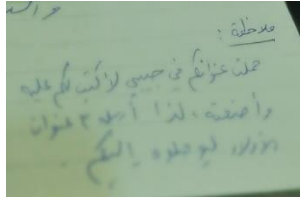 ملاحظة :
حملت عنوانكم في جيبي لأكتب لكم عليه
وأضعته، لذا أرسله عنوان
الأولاد ليوصلوه إليكم .